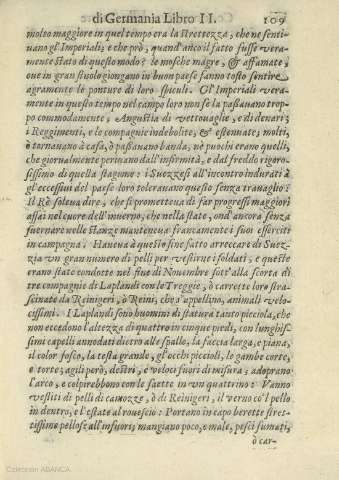 di Germania Libro II. 109
molto maggiore in quel tempo era la strettezza, che ne senti-
uano gl'Imperiali; e che prò, quand'anco il fatto fusse vera-
mente stato di questo modo? le mosche magre, & affamate,
oue in gran stuolo giongano in buon paese fanno tosto sentire
agramente le ponture di loro spiculi. Gl'Imperiali vera-
mente in questo tempo nel campo loro non se la passauano trop-
po commodamente; Angustia di vettouaglie, e di denari;
i Reggimenti, e le compagnie indebolite, & estenuate; molti,
ò tornauano à casa, ò passauano banda, nè puochi erano quelli,
che giornalmente periuano dall'infirmità, e dal freddo rigoro-
sissimo di quella stagone: i Suezzesi all'incontro indurati à
gl'eccessiui del paese loro tolerauano questo senza trauaglio:
Il Rè soleua dire, che si prometteua di far progressi maggiori
assai nel cuore dell'inuerno, che nella state, ond'ancora senza
suernare nelle stanze manteneua francamente i suoi esserciti
in campagna: Haueua à questo fine fatto arreccare di Suez-
zia vn gran numero di pelli per vestirne i soldati, e queste
erano state condotte nel fine di Nouembre sott'alla scorta di
tre compagnie di Laplandi con le Treggie, ò carrette loro stra-
scinate da Reinigeri, ò Reini, che s'appellino, animali velo-
cissimi. I Laplandi sono huomini di statura tanto picciola, che
non eccedono l'altezza di quattro in cinque piedi, con lunghis-
simi capelli annodati dietro alle spalle, la faccia larga, e piana,
il color fosco, la testa grande, gl'occhi piccioli, le gambe corte,
e torte; agili però, destri, e veloci fuori di misura; adoprano
l'arco, e colpirebbono con le saette in vn quattrino: Vanno
vestiti di pelli di camozze, ò di Reinigeri, il verno co'l pelo
in dentro, e l'estate al rouescio: Portano in capo berette stret-
tissime pellose all'infuori; mangiano poco, e male, pesci fumati,
ò car-
Colección ABANCA